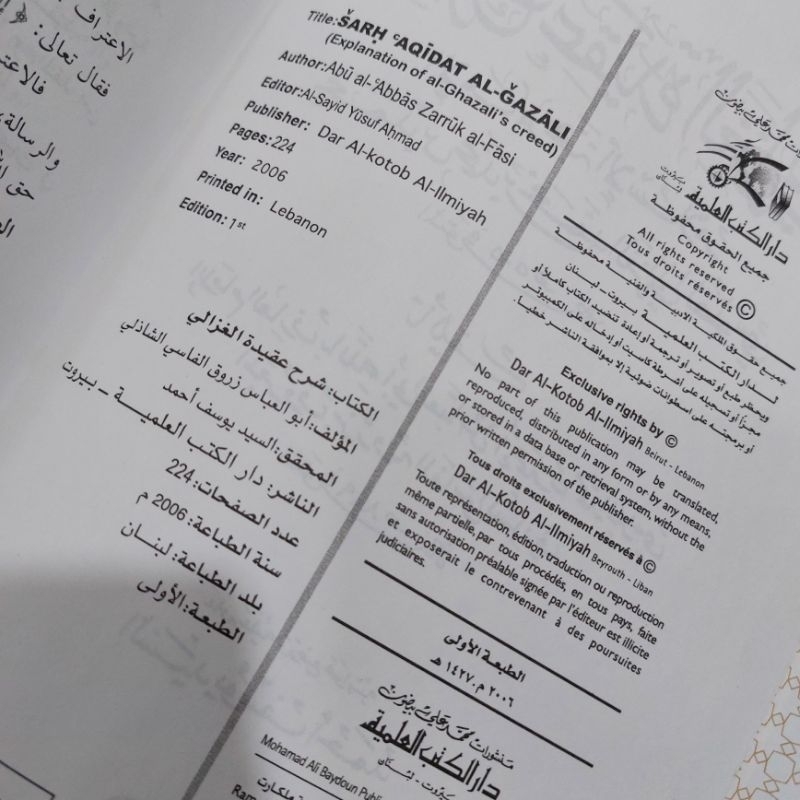 الاعتراف
فقال تعالى:
والرسالة،
Title: ŠARḤ ʿAQĪDAT AL-ĞAZĀLI
(Explanation of al-Ghazali's creed)
Author: Abū al-ʿAbbās Zarrūk al-Fāsi
Editor: Al-Sayid Yūsuf Aḥmad
Publisher: Dar Al-kotob Al-Ilmiyah
Pages: 224
Year: 2006
Printed in: Lebanon
Edition: 1st
الكتاب: شرح عقيدة الغزالي
المؤلف: أبو العباس زروق الفاسي الشاذلي
المحقق: السيد يوسف أحمد
الناشر: دار الكتب العلمية - بيروت
عدد الصفحات: 224
سنة الطباعة: 2006 م
بلد الطباعة: لبنان
الطبعة: الأولى
منشورات محمد علي بيضون
دار الكتب العلمية
بيروت - لبنان
جميع الحقوق محفوظة
Copyright
All rights reserved
Tous droits réservés ©
جميع حقوق الملكية الادبية والفنية محفوظة
لدار الكتب العلمية بيروت - لبنان
ويحظر طبع أو تصوير أو ترجمة أو إعادة تنضيد الكتاب كاملاً أو
مجزأ أو تسجيله على أشرطة كاسيت أو إدخاله على الكمبيوتر
أو برمجته على اسطوانات ضوئية إلا بموافقة الناشر خطياً.
Exclusive rights by ©
Dar Al-Kotob Al-Ilmiyah Beirut - Lebanon
No part of this publication may be translated,
reproduced, distributed in any form or by any means,
or stored in a data base or retrieval system, without the
prior written permission of the publisher.
Tous droits exclusivement réservés à ©
Dar Al-Kotob Al-Ilmiyah Beyrouth - Liban
Toute représentation, édition, traduction ou reproduction
même partielle, par tous procédés, en tous pays, faite
sans autorisation préalable signée par l'éditeur est illicite
et exposerait le contrevenant à des poursuites
judiciaires.
الطبعة الأولى
٢٠٠٦ م. ١٤٢٧ هـ
منشورات محمد علي بيضون
دار الكتب العلمية
بيروت - لبنان
Mohamad Ali Baydoun